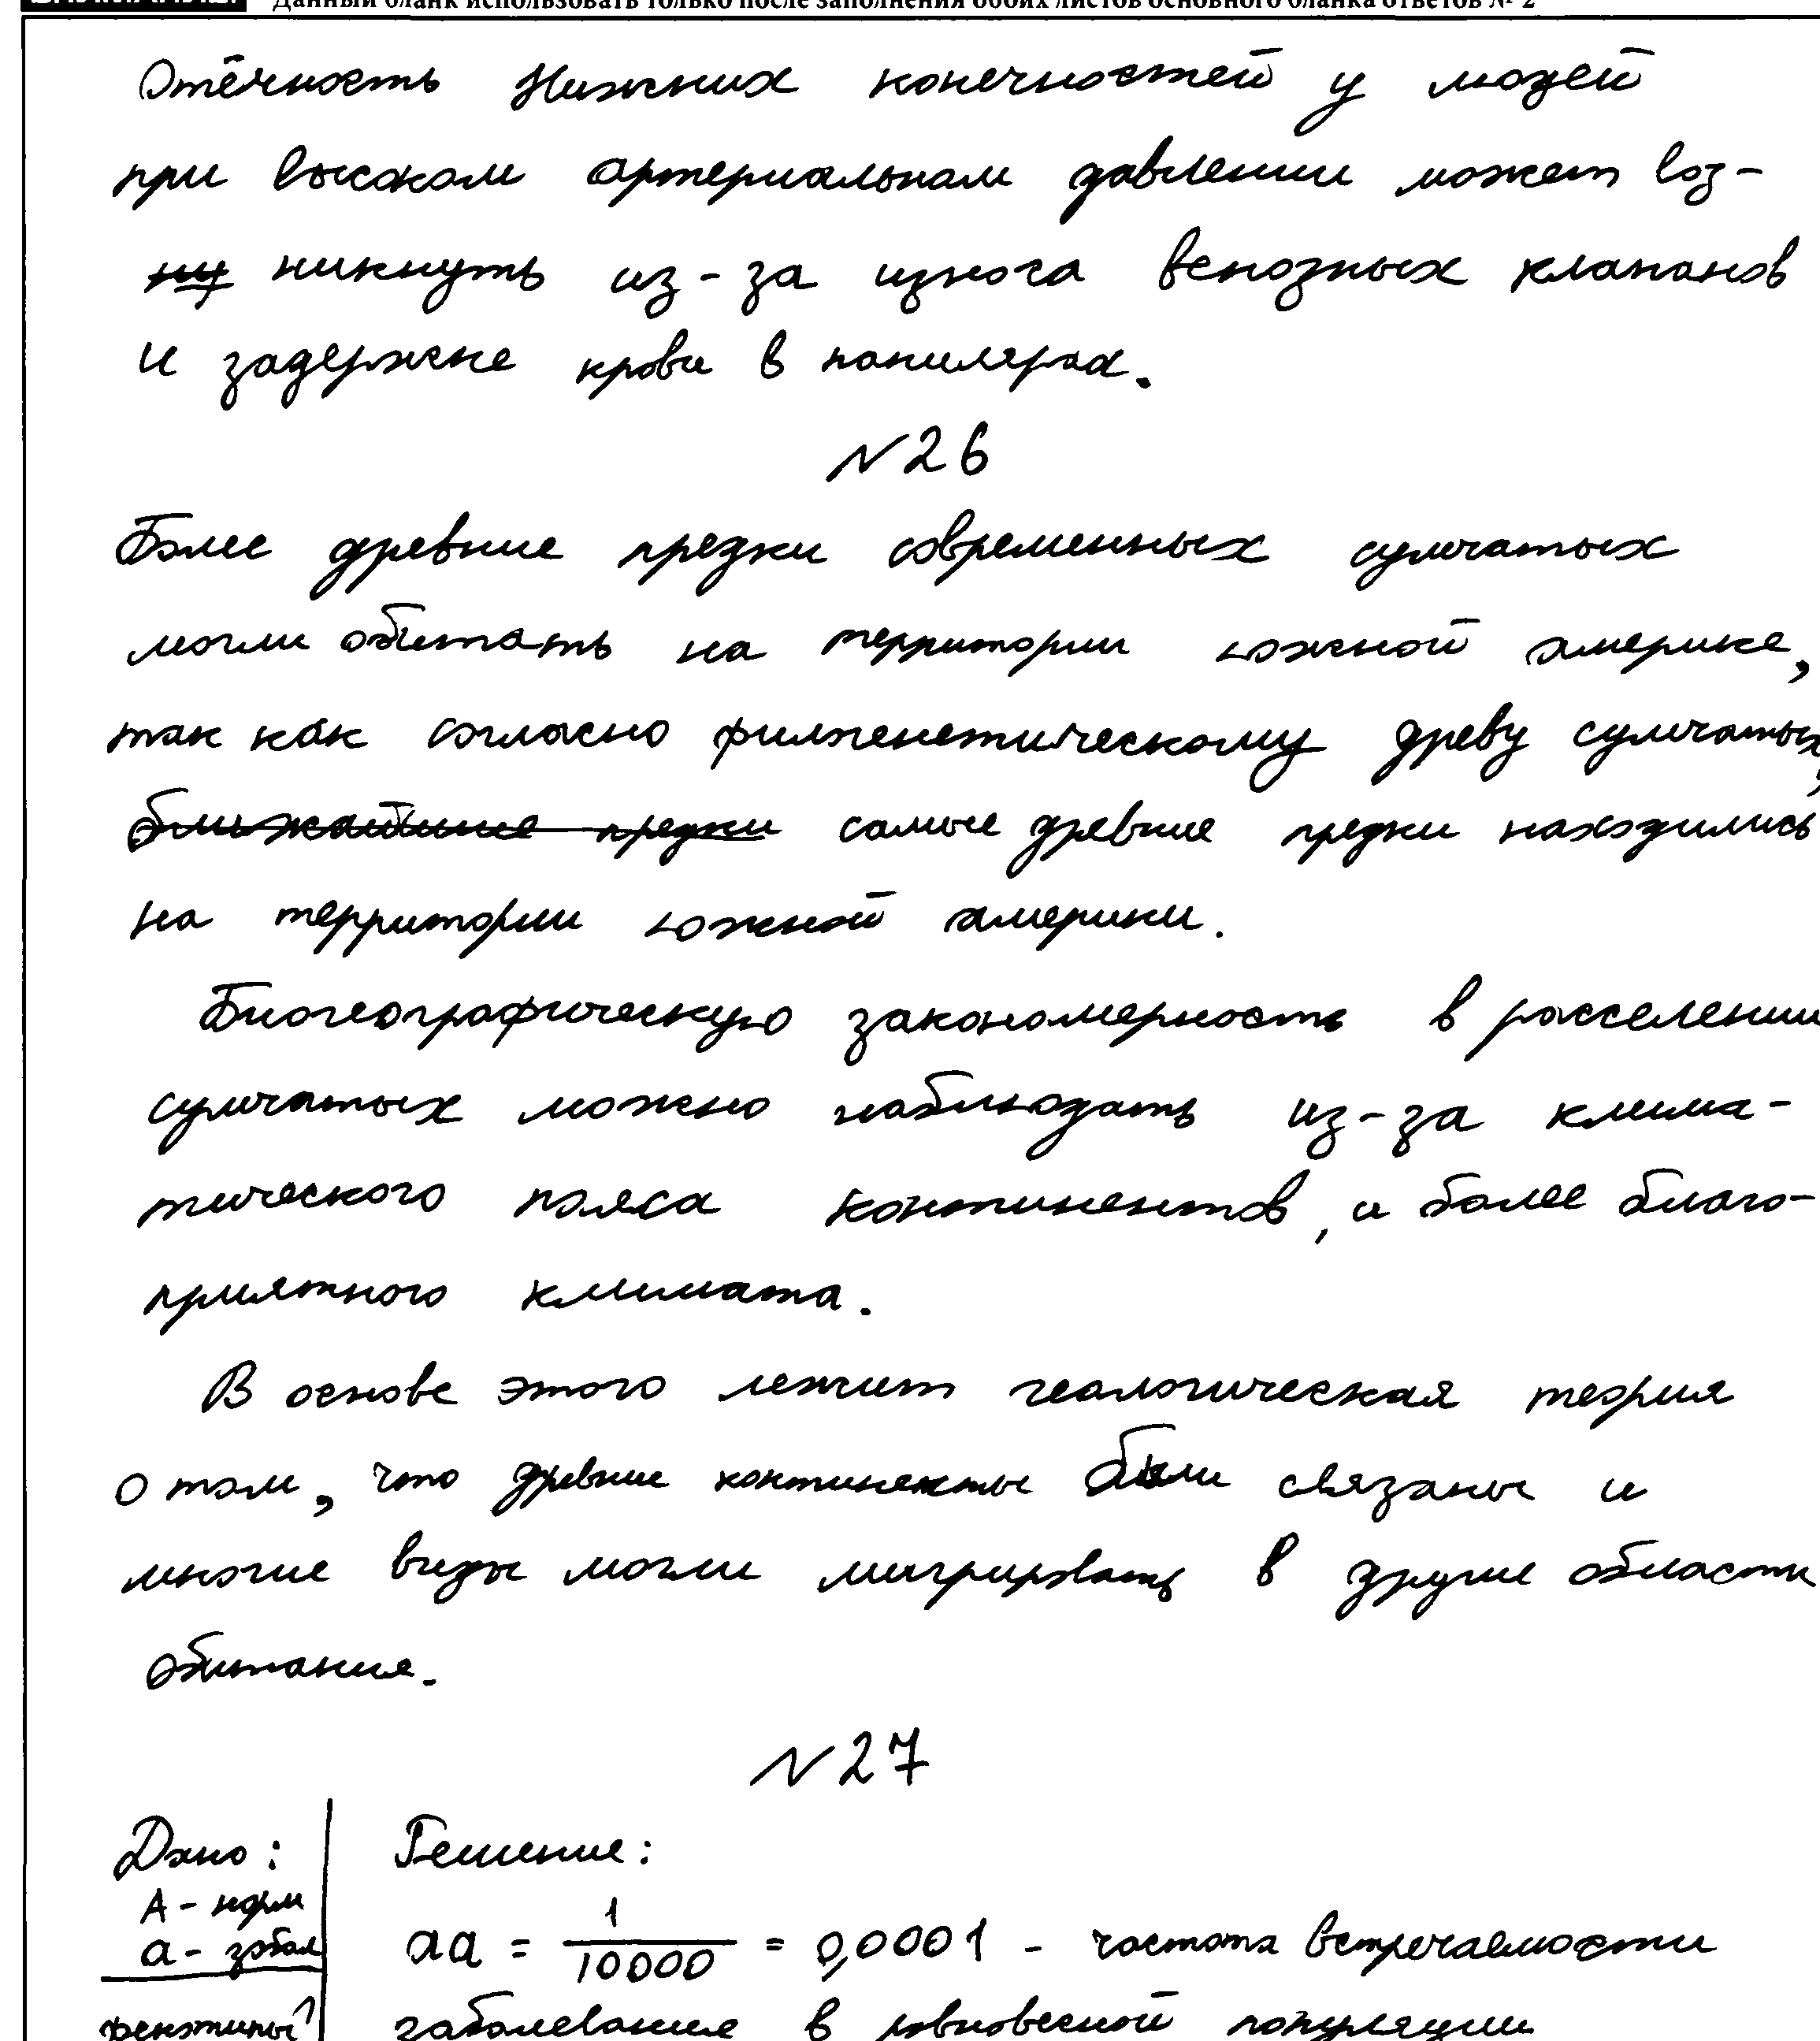 Данный бланк использовать только после заполнения обоих листов основного бланка ответов № 2
Отёчность Нижних конечностей у людей
при высоком артериальном давлении может воз-
ну никнуть из-за износа венозных клапанов
и задержке крови в капилярах.
№26
Более древние предки современных сумчатых
могли обитать на территории южной америке,
так как согласно филогенетическому древу сумчатых,
ближайшие предки самые древние предки находились
на территории южной америки.
Биогеографическую закономерность в расселении
сумчатых можно наблюдать из-за клима-
тического пояса континентов, и более благо-
приятного климата.
В основе этого лежит геологическая теория
о том, что древние континенты были связаны и
многие виды могли мигрировать в другие области
обитания.
№27
Дано: Решение:
А - норм
а - забол aa = 1/10000 = 0,0001 - частота встречаемости
фенотипы? заболевания в равновесной популяции